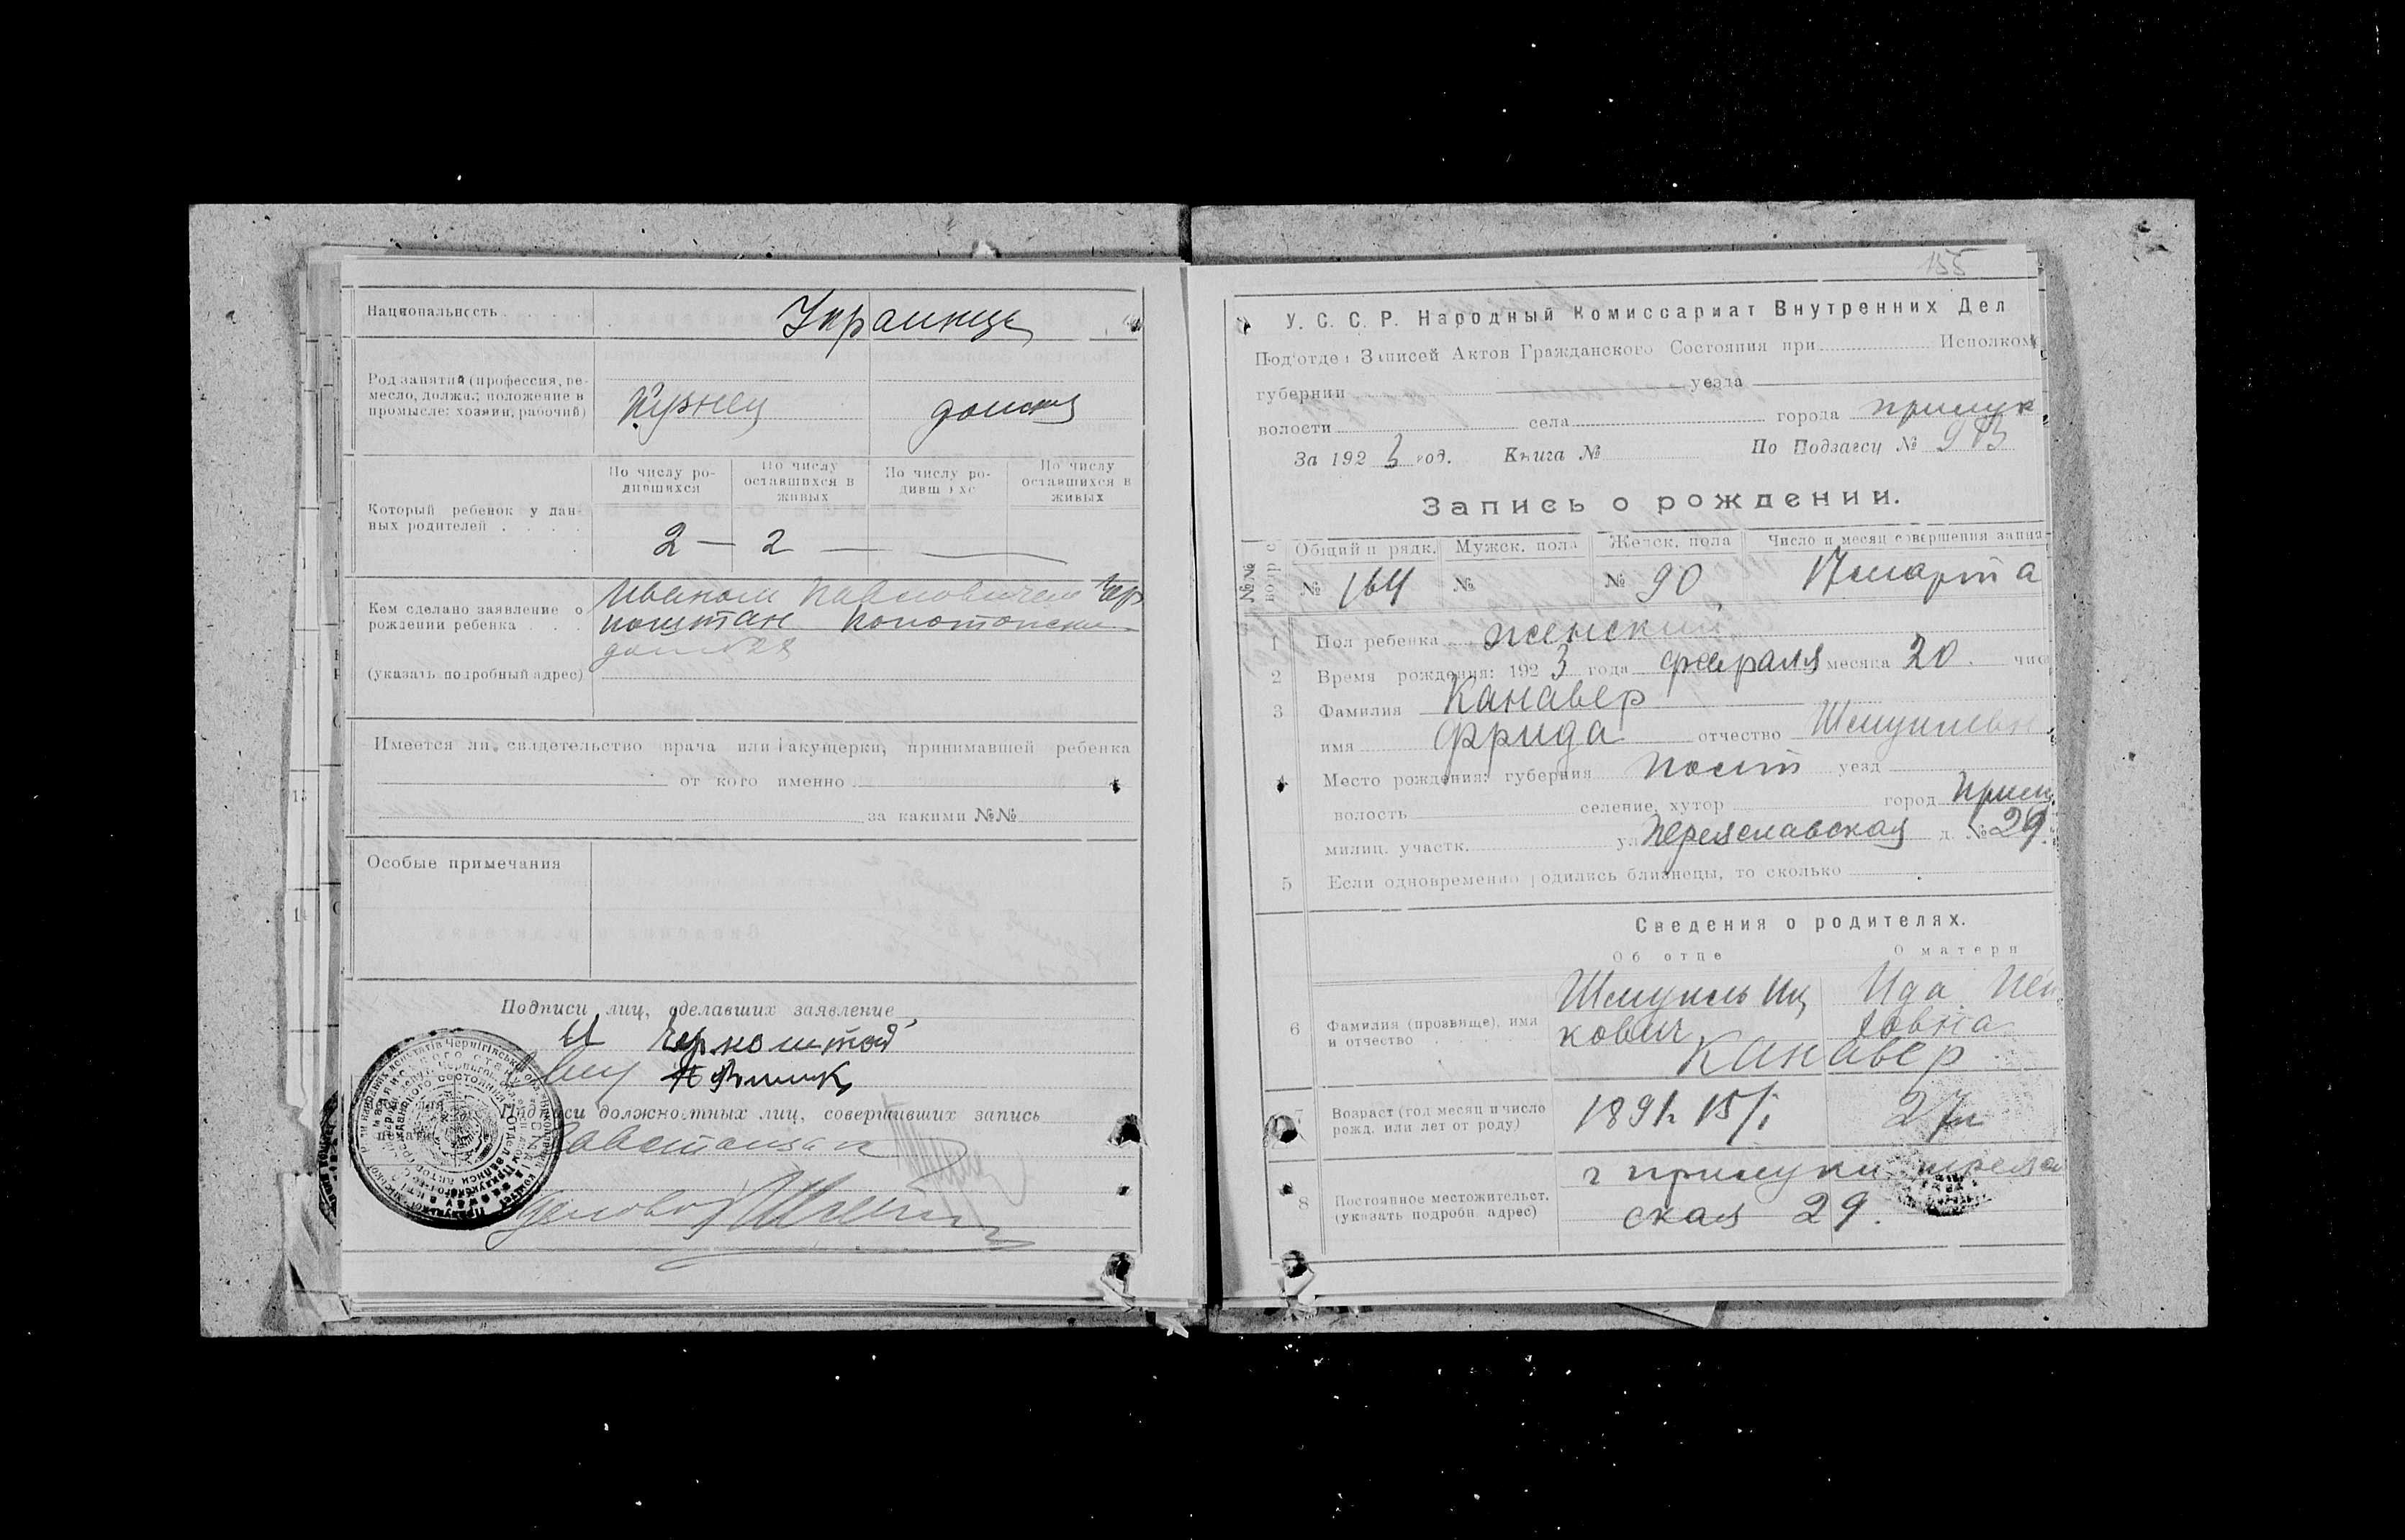 Национальность
Украинцы
Род занятий (профессия, ре-
месло, должн.; положение в
промысле: хозяин, рабочий)
Кузнец
домаш
По числу ро-
дившихся
По числу
оставшихся в
живых
По числу ро-
дивш хс
По числу
оставшихся в
живых
Который ребенок у дан-
ных родителей . . . .
2 — 2 — —
Кем сделано заявление о
рождении ребенка . . .
(указать подробный адрес)
Иваном Павловичем Чер
ноштан Конотопская
дом № 28
Имеется ли свидетельство врача или акушерки, принимавшей ребенка
от кого именно
за какими №№
Особые примечания
Подписи лиц, сделавших заявление
И Черноштан
Подписи должностных лиц, совершивших запись
155
У. С. С. Р. Народный Комиссариат Внутренних Дел
Под'отдел Записей Актов Гражданского Состояния при Исполком
губернии уезда
волости села города прилук
За 1923 год. Книга № По Подзагсу №
Запись о рождении.
№№
Общий п рядк. Мужск. пола Женск. пола Число и месяц совершения запи
№ 164 № № 90 17 марта
1 Пол ребенка женский
2 Время рождения: 1923 года февраля месяца 20. чис
3 Фамилия Канавер
имя Фрида отчество Шмулиевн
4 Место рождения: губерния Полт уезд
волость селение, хутор город Прил
милиц. участк. ул Переяславская д. № 29.
5 Если одновременно родились близнецы, то сколько
Сведения о родителях.
Об отце О матери
6 Фамилия (прозвище), имя
и отчество
Шмуиль Иц
кович
Ида Ней
Канавер
7 Возраст (год месяц и число
рожд. или лет от роду)
1891 г 15/I
27 л
8 Постоянное местожительст.
(указать подробн. адрес)
г прилуки переяс
ская 29.